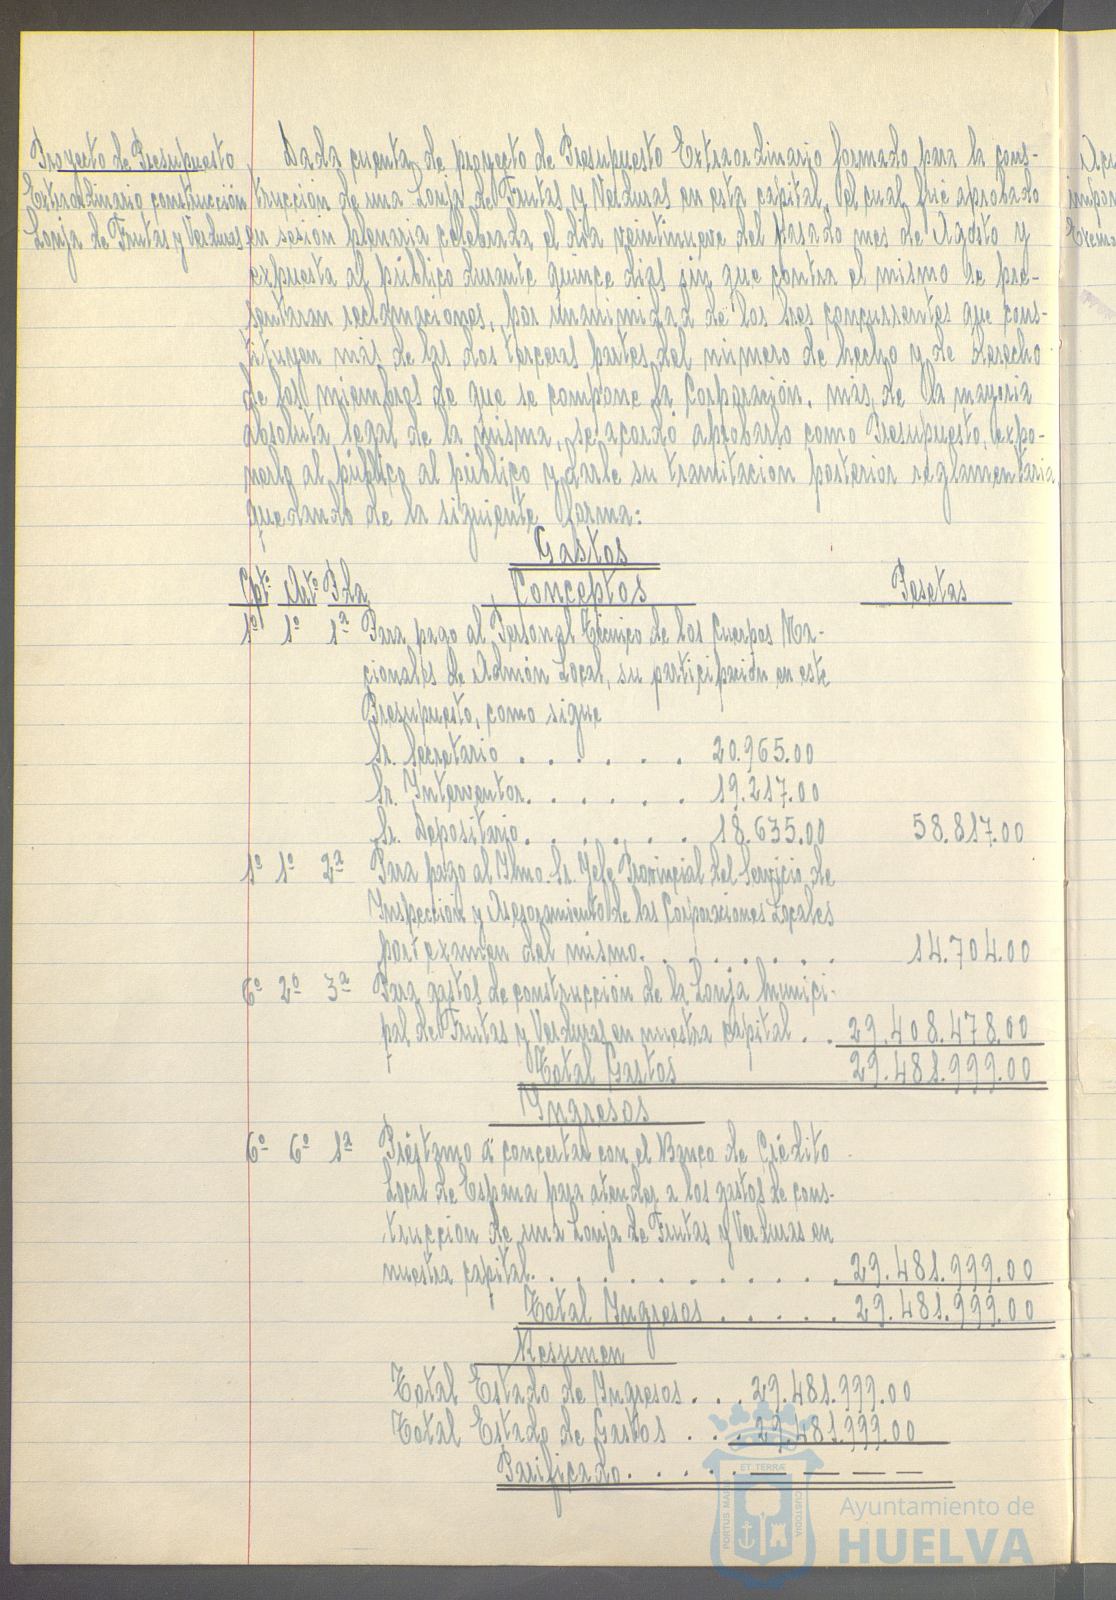 Proyecto de Presupuesto
Extraordinario construcción
Lonja de Frutas y Verduras
Dada cuenta de proyecto de Presupuesto Extraordinario formado para la cons-
trucción de una Lonja de Frutas y Verduras en esta capital, el cual fué aprobado
en sesión plenaria celebrada el día veintinueve del pasado mes de Agosto y
expuesta al público durante quince días sin que contra el mismo se pre-
sentaran reclamaciones, por unanimidad de los tres concurrentes que cons-
tituyen más de las dos terceras partes del número de hecho y de derecho
de los miembros de que se compone la Corporación, más de la mayoria
absoluta legal de la misma, se acordó aprobarlo como Presupuesto, expo-
nerlo al público al público y darle su tramitación posterior reglamentaria
quedando de la siguiente forma:
Gastos
Cptº Artº Pda Conceptos Pesetas
1º 1º 1ª Para pago al Personal Técnico de los Cuerpos Na-
cionales de Admón Local, su participación en este
Presupuesto, como sigue
Sr. Secretario . . . . . . 20.965.00
Sr. Interventor. . . . . . 19.217.00
Sr. Depositario. . . . . . . 18.635.00 58.817.00
1º 1º 2ª Para pago al Ilmo. Sr. Jefe Provincial del Servicio de
Inspección y Asesoramiento de las Corporaciones Locales
por examen del mismo. . . . . . . . 14.704.00
6º 2º 3ª Para gastos de construcción de la Lonja Munici-
pal de Frutas y Verduras en nuestra capital . . 29.408.478.00
Total Gastos 29.481.999.00
Ingresos
6º 6º 1ª Préstamo a concertar con el Banco de Crédito
Local de España para atender a los gastos de cons-
trucción de una Lonja de Frutas y Verduras en
nuestra capital. . . . . . . . . . . . . 29.481.999.00
Total Ingresos . . . . . 29.481.999.00
Resumen
Total Estado de Ingresos . . . 29.481.999.00
Total Estado de Gastos . . . 29.481.999.00
Parificado. . . . . . — — — —
ET TERRÆ
PORTUS MARIS
CUSTODIA
Ayuntamiento de
HUELVA